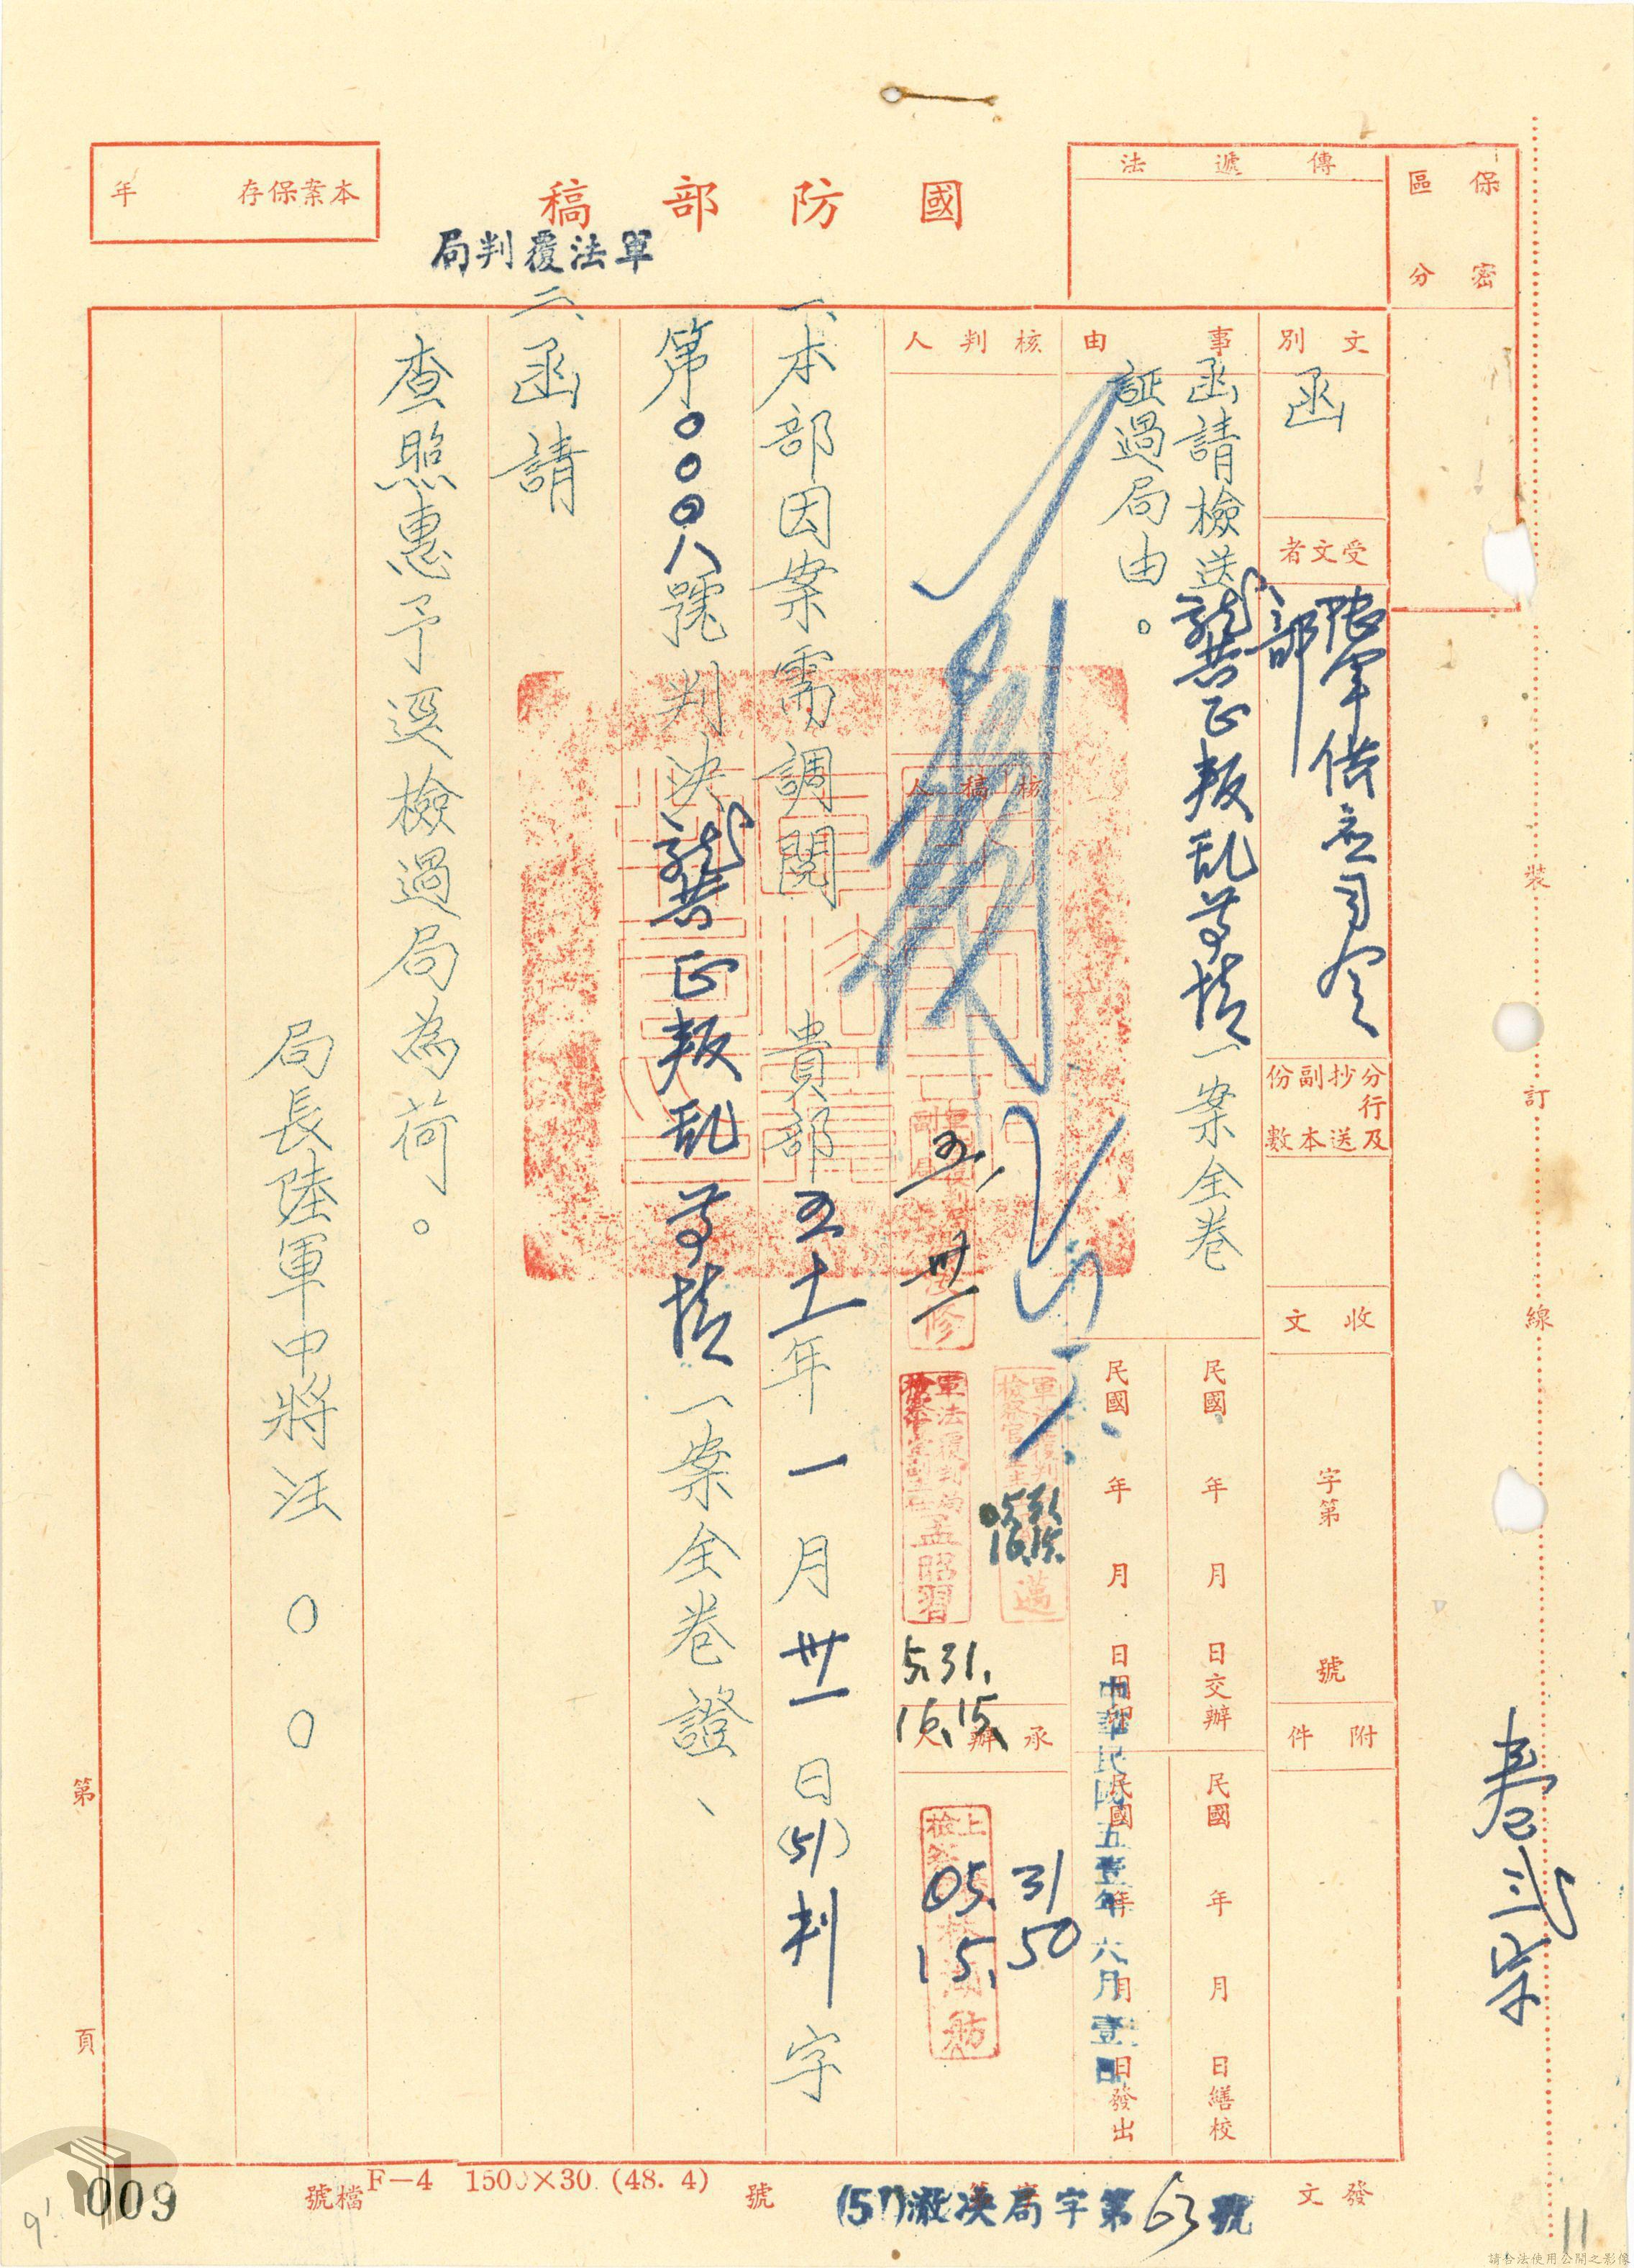 國防部稿
軍法覆判局
本案保存 年
傳遞法
保密
區分
文別
函
受文者
聯軍供應司令
部
分行及
抄送
副本
份數
收文
字第 號
附件
事由
函請檢送龔正叛乱等情一案全卷
証過局由。
民國 年 月 日交辦
民國 年 月 日繕校
民國 年 月 日
民國 年 月 日發出
中華民國五壹年六月壹日
核判人
核稿人
五、卅一
軍法覆判局
檢察官
孟昭習
05.31.
16.15.
5.31.
16.15.
承辦人
05.31
15.50
一、本部因案需調閱 貴部五十一年一月卅一日(51)判字
第〇〇〇八號判決龔正叛乱等情一案全卷證、
二、函請
查照惠予逕檢過局為荷。
局長陸軍中將汪〇〇
裝
訂
線
第 頁
檔號
F－4 1500×30.(48.4)
發文
(51)澈决局字第63號
號
009
9'
11
請合法使用公開之影像